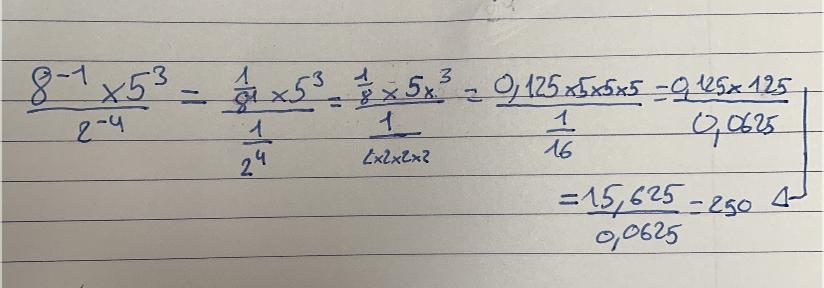 8⁻¹ × 5³ / 2⁻⁴ = 1/8¹ × 5³ / 1/2⁴ = 1/8 × 5 × 3 / 1/2×2×2×2 = 0,125×5×5×5 / 1/16 = 0,125 × 125 / 0,0625
= 15,625 / 0,0625 = 250